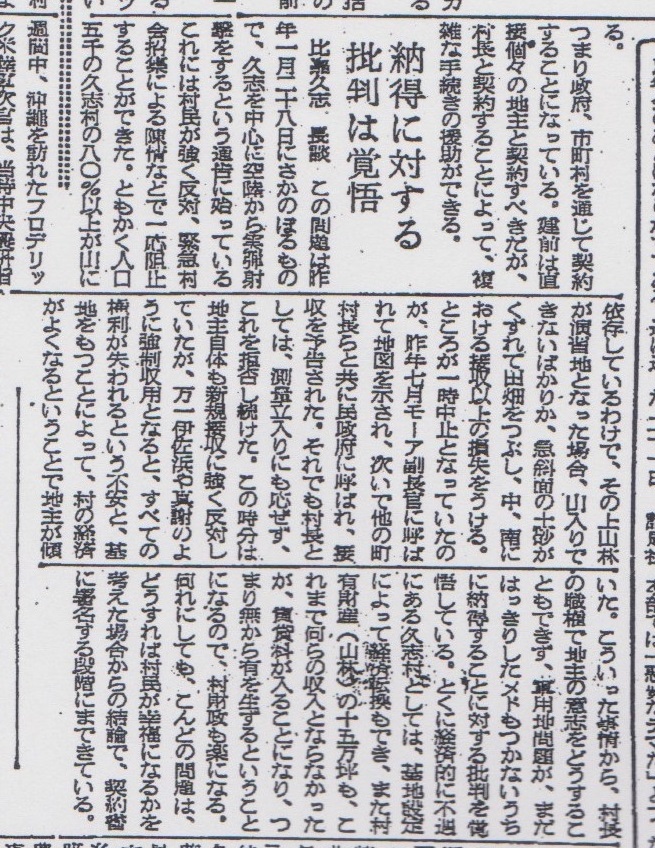 る。
つまり政府、市町村を通じて契約
することになっている。建前は直
接個々の地主と契約すべきだが、
村長と契約することによって、複
雑な手続きの援助ができる。
納得に対する
批判は覚悟
比嘉久志 長談 この問題は昨
年一月二十八日にさかのぼるもの
で、久志を中心に空陸から実弾射
撃をするという通告に始っている
これには村民が強く反対、緊急村
会招集による陳情などで一応阻止
することができた。ともかく人口
五千の久志村の八〇%以上が山に
依存しているわけで、その上山林
が演習地となった場合、山入りで
きないばかりか、急斜面の土砂が
くずれて田畑をつぶし、中、南に
おける接収以上の損失をうける。
ところが一時中止となっていたの
が、昨年七月モーア副長官に呼ば
れて地図を示され、次いで他の町
村長らと共に民政府に呼ばれ、接
収を予告された。それでも村長と
しては、測量立入りにも応ぜず、
これを拒否し続けた。この時分は
地主自体も新規接収に強く反対し
ていたが、万一伊佐浜や真謝のよ
うに強制収用となると、すべての
権利が失われるという不安と、基
地をもつことによって、村の経済
がよくなるということで地主が傾
いた。こういった事情から、村長
の職権で地主の意志をどうするこ
ともできず、軍用地問題が、まだ
はっきりしたメドもつかないうち
に納得することに対する批判を覚
悟している。とくに経済的に不遇
にある久志村としては、基地設定
によって経済転換もでき、また村
有財産(山林)の十五万坪も、こ
れまで何らの収入とならなかった
が、賃貸料が入ることになり、つ
まり無から有を生ずるということ
になるので、村財政も楽になる。
何れにしても、こんどの問題は、
どうすれば村民が幸福になるかを
考えた場合からの結論で、契約書
に署名する段階にまできている。
週間中、沖縄を訪れたフロデリッ